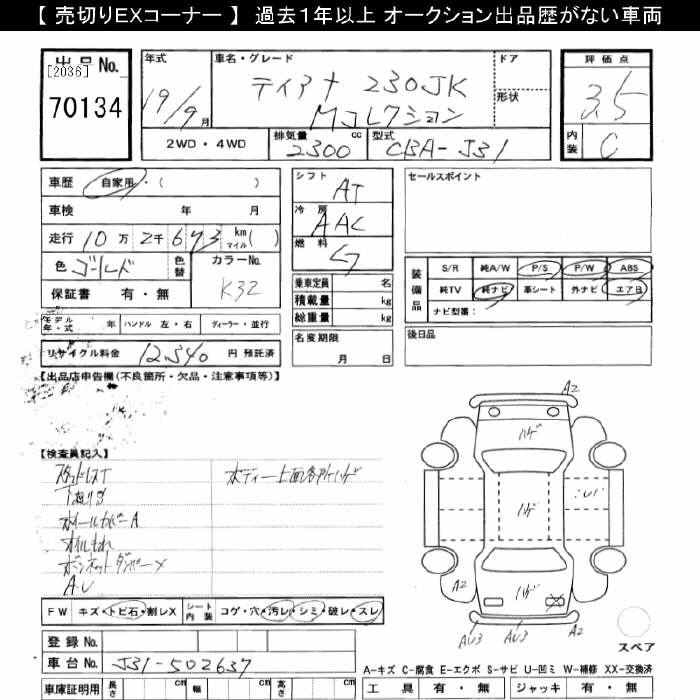 【 売切りEXコーナー 】 過去1年以上 オークション出品歴がない車両
出 品 No.
[2036]
70134
年式
19/9月
車名・グレード
ティアナ 230JK
Mコレクション
ドア
形状
2WD・4WD
排気量
2300 cc
型式
CBA-J31
評 価 点
3.5
内装
C
車歴
自家用・( )
車検 年 月
走行 10万 2千 673 km マイル( )
色 ゴールド 色替
カラーNo.
K32
保証書 有・無
シフト
AT
冷房
AAC
燃料
G
乗車定員 名
積載量 kg
総重量 kg
名変期限
月 日
セールスポイント
装備品
S/R 純A/W P/S P/W ABS
純TV 純ナビ 革シート 外ナビ エアB
ナビ型番:
後日品
モデル年・式 年 ハンドル 左・右 ディーラー・並行
リサイクル料金 12,540 円 預託済
【出品店申告欄(不良箇所・欠品・注意事項等)】
【検査員記入】
スタッドレスT
下廻りサ
ホイールカバーA
オイルもれ
ボンネットダンパー✕
ボディー上面各所ハゲ
A2
ハゲ
ハゲ
ハゲ
A2
A2
AU3
AU3
スペア
FW キズ・トビ石・割レX
シート内装 コゲ・穴・汚レ・シミ・破レ・スレ
登 録 No.
車 台 No. J31-502637
車庫証明用 長さ cm 幅 cm 高さ cm
A-キズ C-腐食 E-エクボ S-サビ U-凹ミ W-補修 XX-交換済
工 具 有・無 ジャッキ 有・無